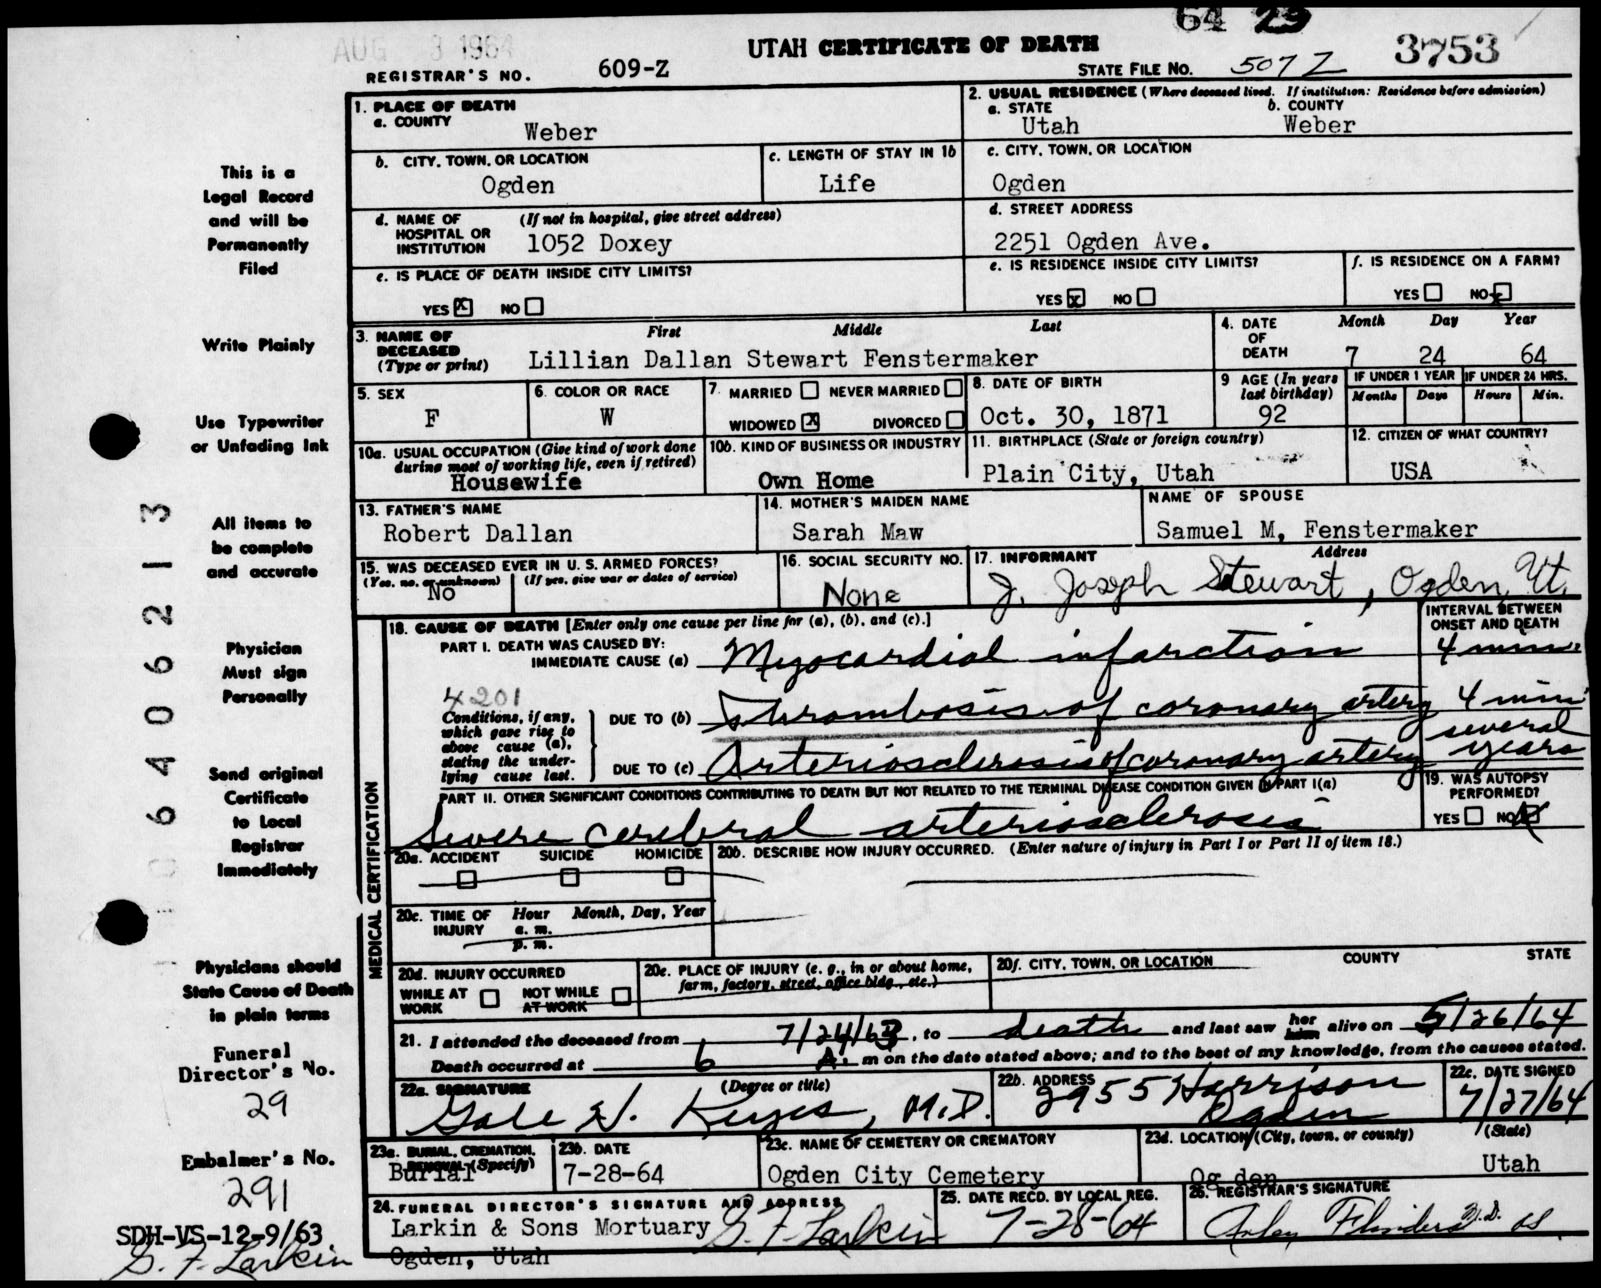 64 29
AUG 3 1964
UTAH CERTIFICATE OF DEATH
3753
REGISTRAR'S NO. 609-Z
STATE FILE NO. 507 Z
This is a
Legal Record
and will be
Permanently
Filed
Write Plainly
Use Typewriter
or Unfading Ink
All items to
be complete
and accurate
Physician
Must sign
Personally
Send original
Certificate
to Local
Registrar
Immediately
Physicians should
State Cause of Death
in plain terms
Funeral
Director's No.
29
Embalmer's No.
291
SDH-VS-12-9/63
G. F. Larkin
06406213
1. PLACE OF DEATH
a. COUNTY
Weber
2. USUAL RESIDENCE (Where deceased lived. If institution: Residence before admission)
a. STATE b. COUNTY
Utah Weber
b. CITY, TOWN, OR LOCATION
Ogden
c. LENGTH OF STAY IN 1b
Life
c. CITY, TOWN, OR LOCATION
Ogden
d. NAME OF (If not in hospital, give street address)
HOSPITAL OR
INSTITUTION 1052 Doxey
d. STREET ADDRESS
2251 Ogden Ave.
e. IS PLACE OF DEATH INSIDE CITY LIMITS?
YES X NO
e. IS RESIDENCE INSIDE CITY LIMITS?
YES X NO
f. IS RESIDENCE ON A FARM?
YES NO X
3. NAME OF
DECEASED
(Type or print)
First Middle Last
Lillian Dallan Stewart Fenstermaker
4. DATE
OF
DEATH
Month Day Year
7 24 64
5. SEX
F
6. COLOR OR RACE
W
7. MARRIED NEVER MARRIED
WIDOWED X DIVORCED
8. DATE OF BIRTH
Oct. 30, 1871
9 AGE (In years
last birthday)
92
IF UNDER 1 YEAR IF UNDER 24 HRS.
Months Days Hours Min.
10a. USUAL OCCUPATION (Give kind of work done
during most of working life, even if retired)
Housewife
10b. KIND OF BUSINESS OR INDUSTRY
Own Home
11. BIRTHPLACE (State or foreign country)
Plain City, Utah
12. CITIZEN OF WHAT COUNTRY?
USA
13. FATHER'S NAME
Robert Dallan
14. MOTHER'S MAIDEN NAME
Sarah Maw
NAME OF SPOUSE
Samuel M. Fenstermaker
15. WAS DECEASED EVER IN U. S. ARMED FORCES?
(Yes, no, or unknown) (If yes, give war or dates of service)
No
16. SOCIAL SECURITY NO.
None
17. INFORMANT Address
J. Joseph Stewart, Ogden, Ut.
MEDICAL CERTIFICATION
18. CAUSE OF DEATH [Enter only one cause per line for (a), (b), and (c).]
INTERVAL BETWEEN
ONSET AND DEATH
PART I. DEATH WAS CAUSED BY:
IMMEDIATE CAUSE (a) Myocardial infarction 4 min.
4201
Conditions, if any,
which gave rise to
above cause (a),
stating the under-
lying cause last.
DUE TO (b) Thrombosis of coronary artery 4 min
DUE TO (c) Arteriosclerosis of coronary artery several
years
PART II. OTHER SIGNIFICANT CONDITIONS CONTRIBUTING TO DEATH BUT NOT RELATED TO THE TERMINAL DISEASE CONDITION GIVEN IN PART I(a)
Severe cerebral arteriosclerosis
19. WAS AUTOPSY
PERFORMED?
YES NO X
20a. ACCIDENT SUICIDE HOMICIDE
20b. DESCRIBE HOW INJURY OCCURRED. (Enter nature of injury in Part I or Part II of item 18.)
20c. TIME OF Hour Month, Day, Year
INJURY a. m.
p. m.
20d. INJURY OCCURRED
WHILE AT NOT WHILE
WORK AT WORK
20e. PLACE OF INJURY (e. g., in or about home,
farm, factory, street, office bldg., etc.)
20f. CITY, TOWN, OR LOCATION COUNTY STATE
21. I attended the deceased from 7/24/63, to death and last saw her him alive on 5/26/64
Death occurred at 6 A. m on the date stated above; and to the best of my knowledge, from the causes stated.
22a. SIGNATURE (Degree or title)
Gale H. Keyes, M.D.
22b. ADDRESS
2955 Harrison
Ogden
22c. DATE SIGNED
7/27/64
23a. BURIAL, CREMATION,
REMOVAL (Specify)
Burial
23b. DATE
7-28-64
23c. NAME OF CEMETERY OR CREMATORY
Ogden City Cemetery
23d. LOCATION (City, town, or county) (State)
Ogden Utah
24. FUNERAL DIRECTOR'S SIGNATURE AND ADDRESS
Larkin & Sons Mortuary G. F. Larkin
Ogden, Utah
25. DATE RECD. BY LOCAL REG.
7-28-64
26. REGISTRAR'S SIGNATURE
Flinders M.D.